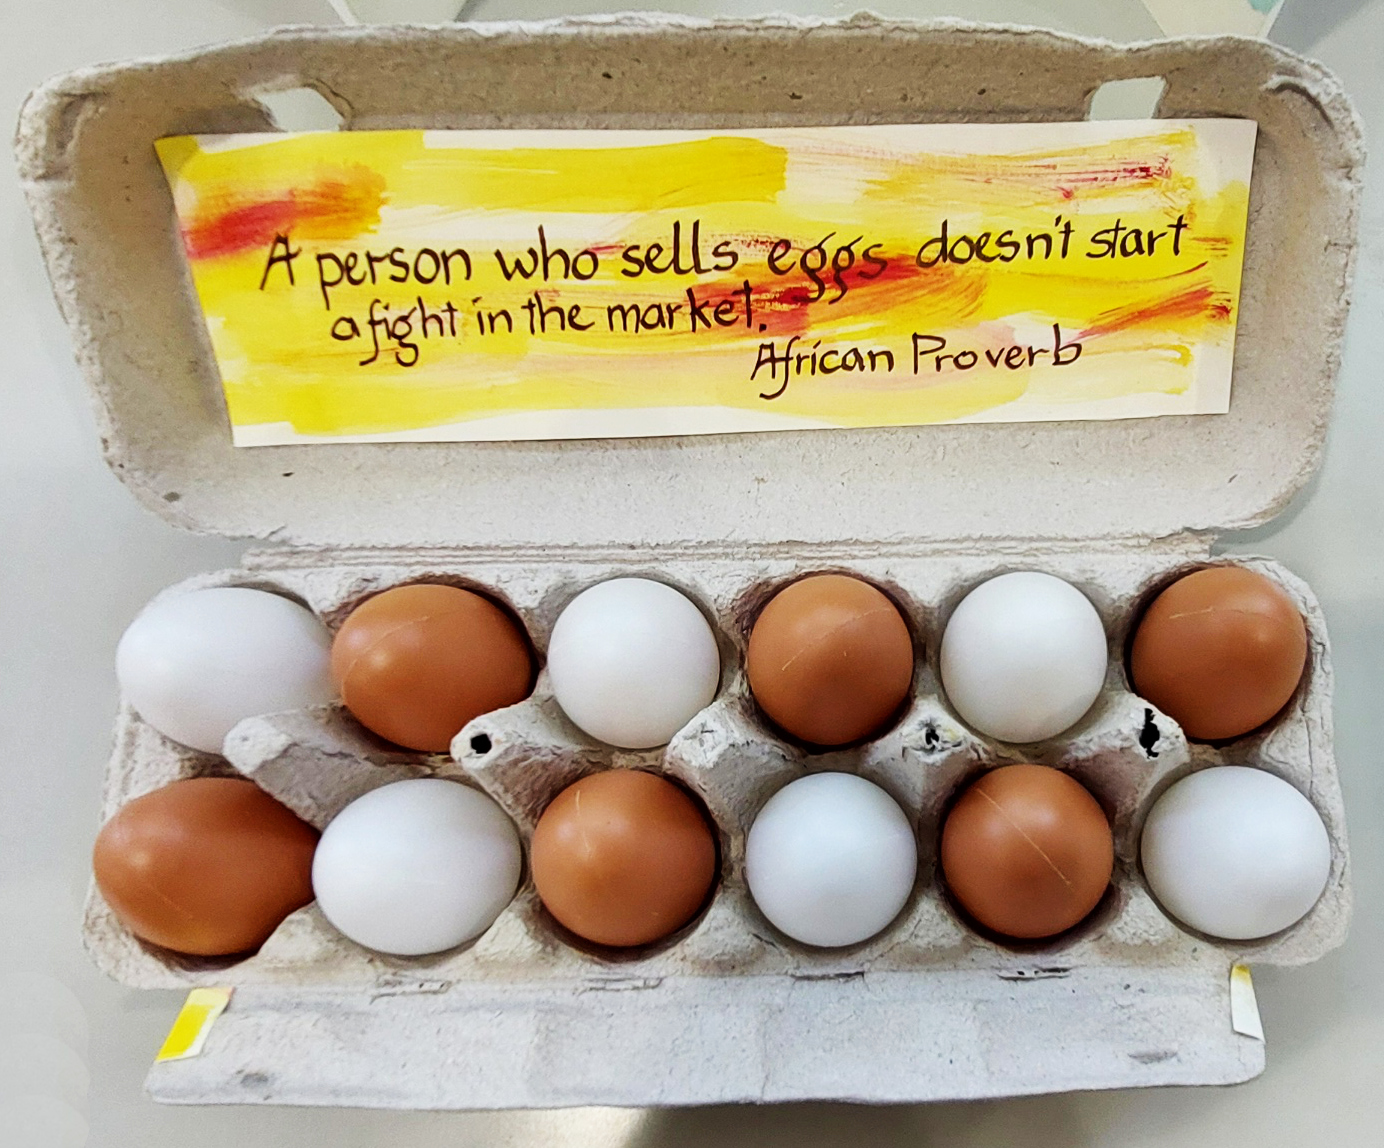 A person who sells eggs doesn't start
a fight in the market.
African Proverb